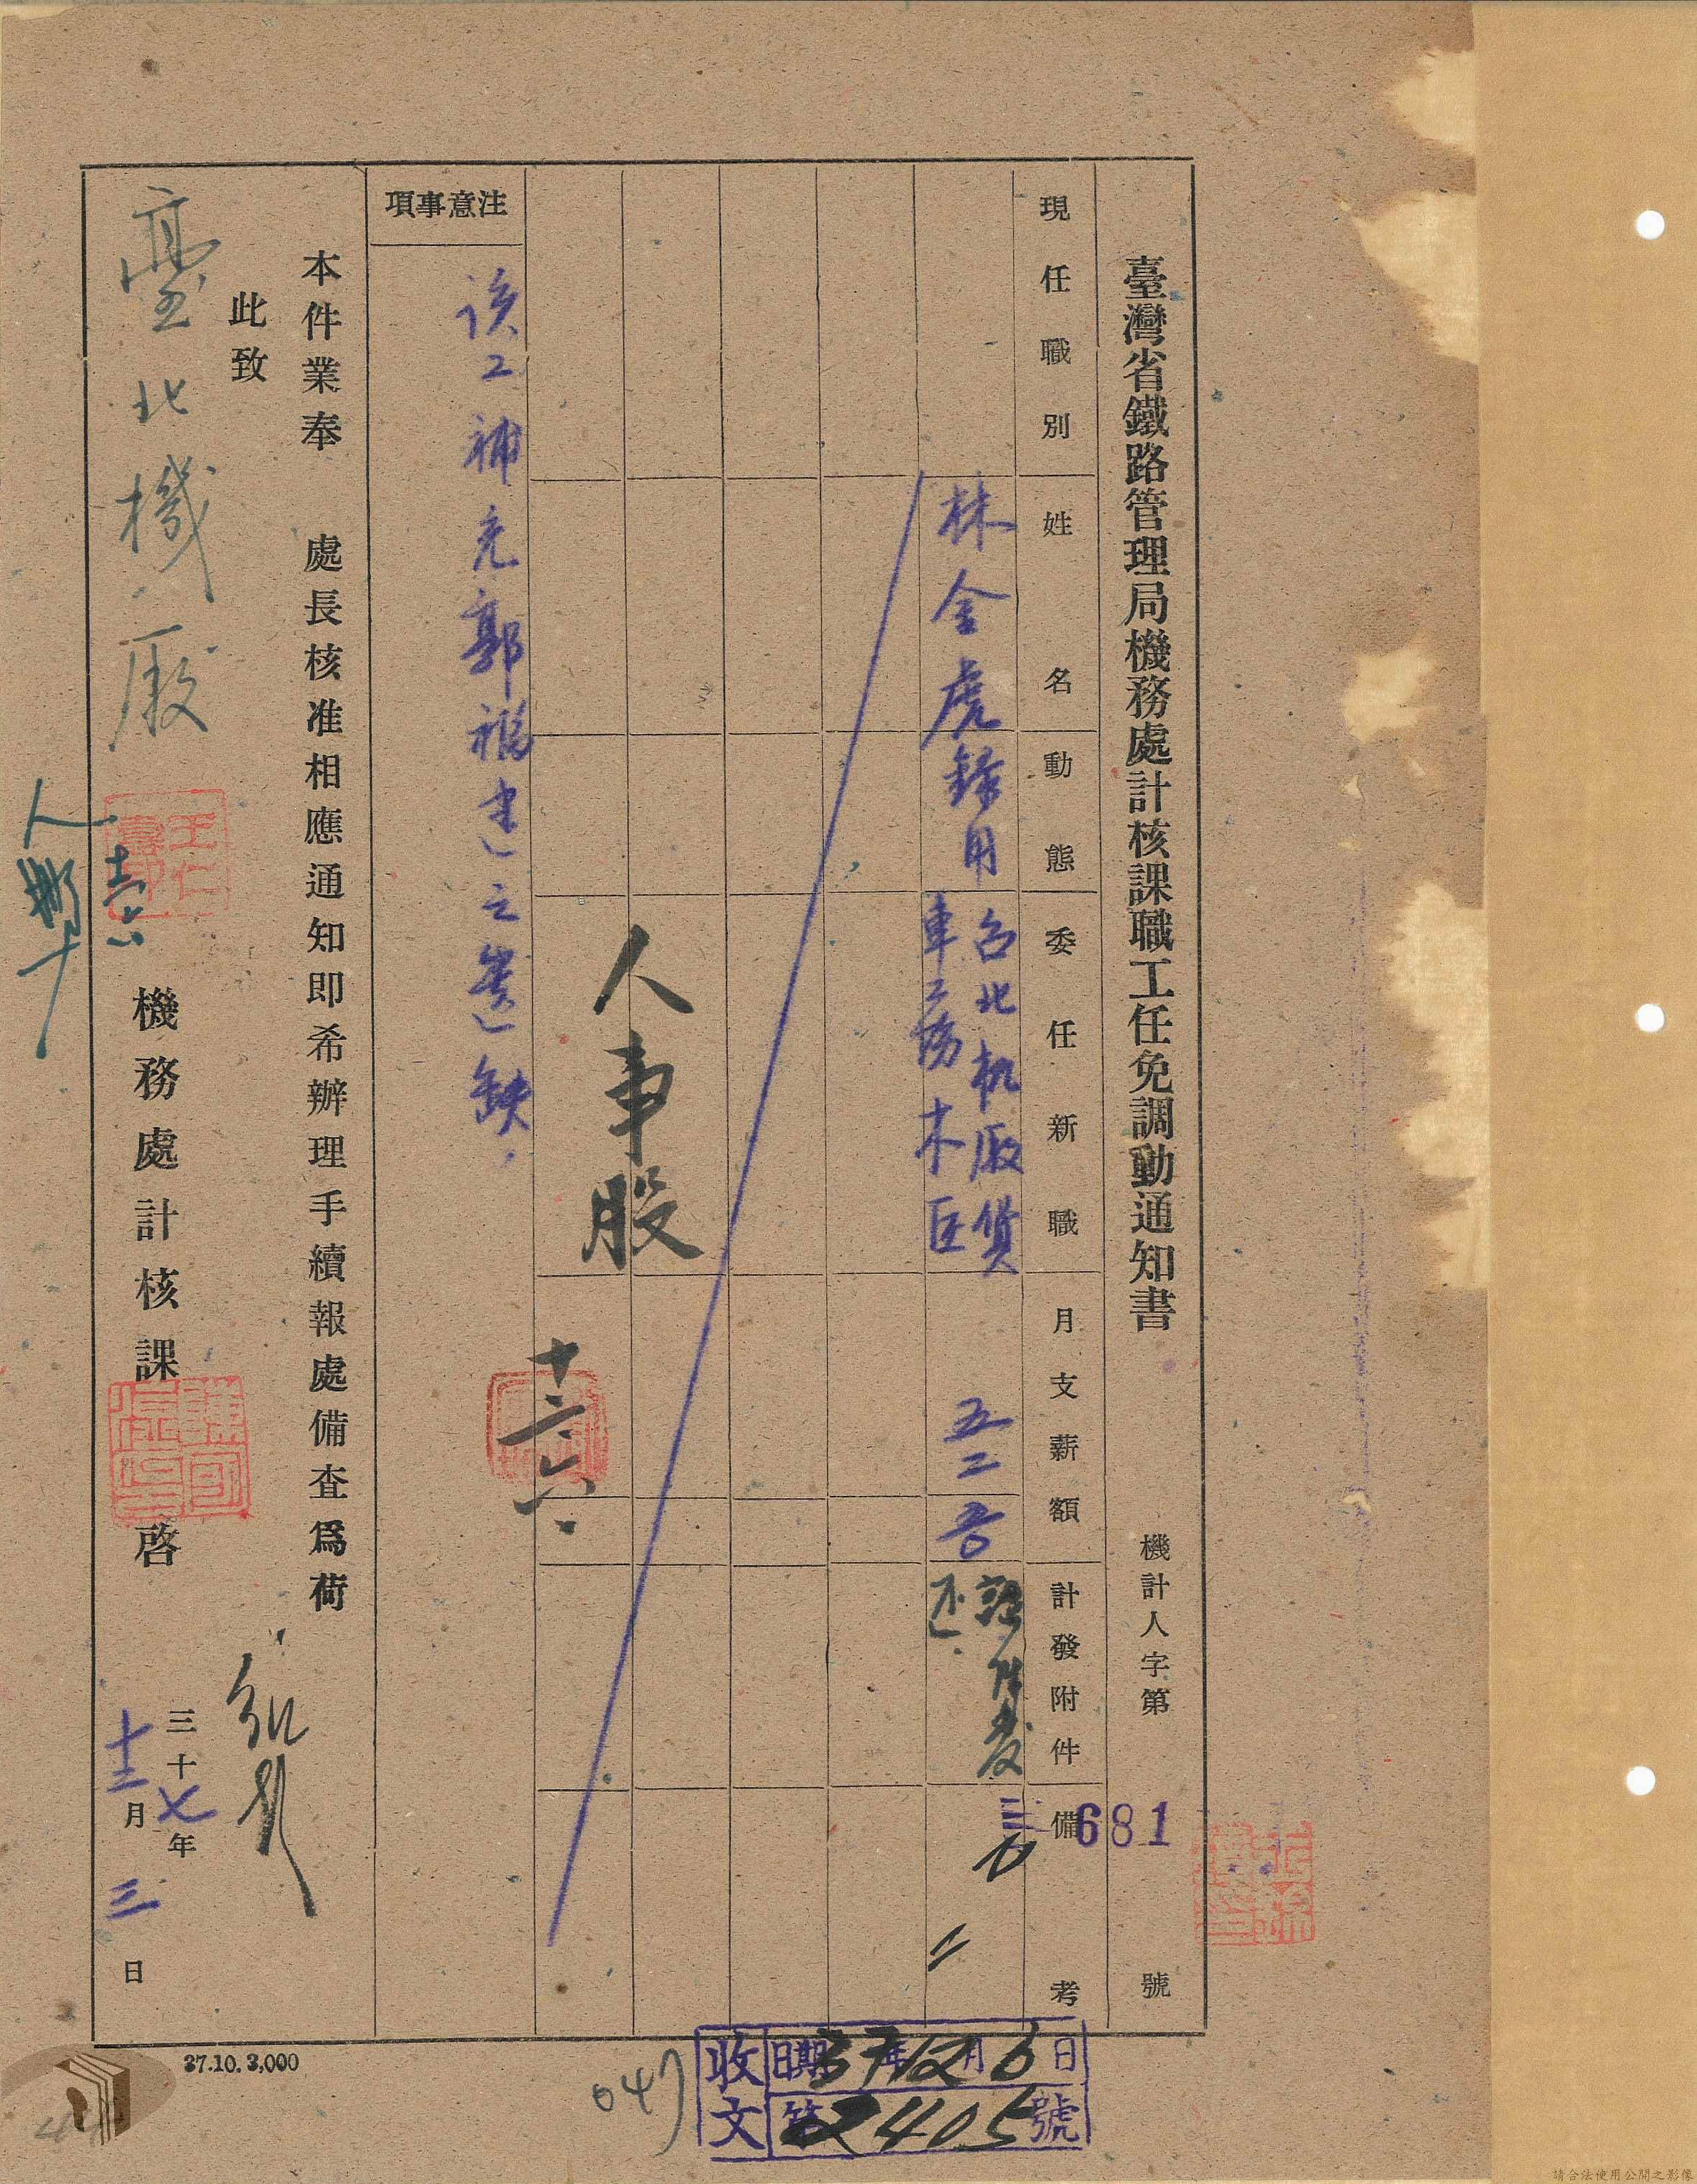 臺灣省鐵路管理局機務處計核課職工任免調動通知書
機計人字第681號
現任職別
姓名
動態
委任新職
月支薪額
計發附件
備考
林金虎
錄用
台北机廠貨
車工場木匠
五二
注意事項
該工補充郭福建之遺缺
人事股
十二六
本件業奉 處長核准相應通知即希辦理手續報處備查爲荷
此致
臺北機廠
機務處計核課 啓
三十七年
十二月三日
37.10.3,000
收文
日期37年12月6日
第2405號
047
請合法使用公開之影像